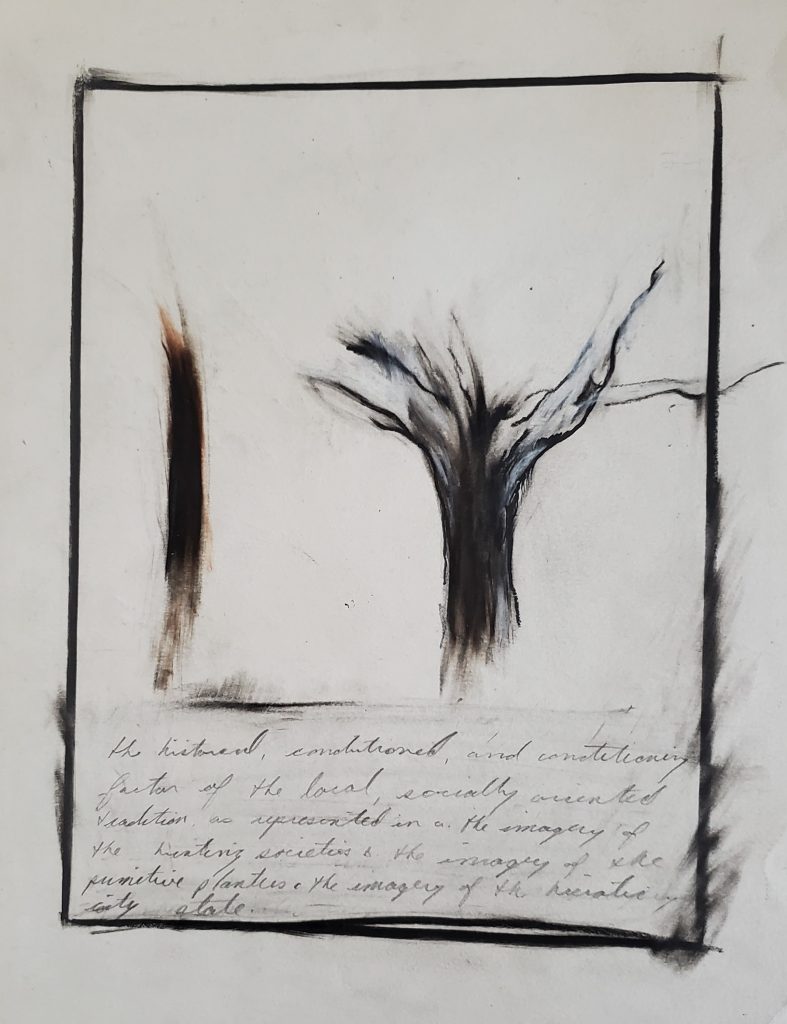 the historical, conditioned, and conditioning
factor of the local, socially oriented
tradition, as represented in a. the imagery of
the hunting societies b. the imagery of the
primitive planters c the imagery of the hieratic
city state.